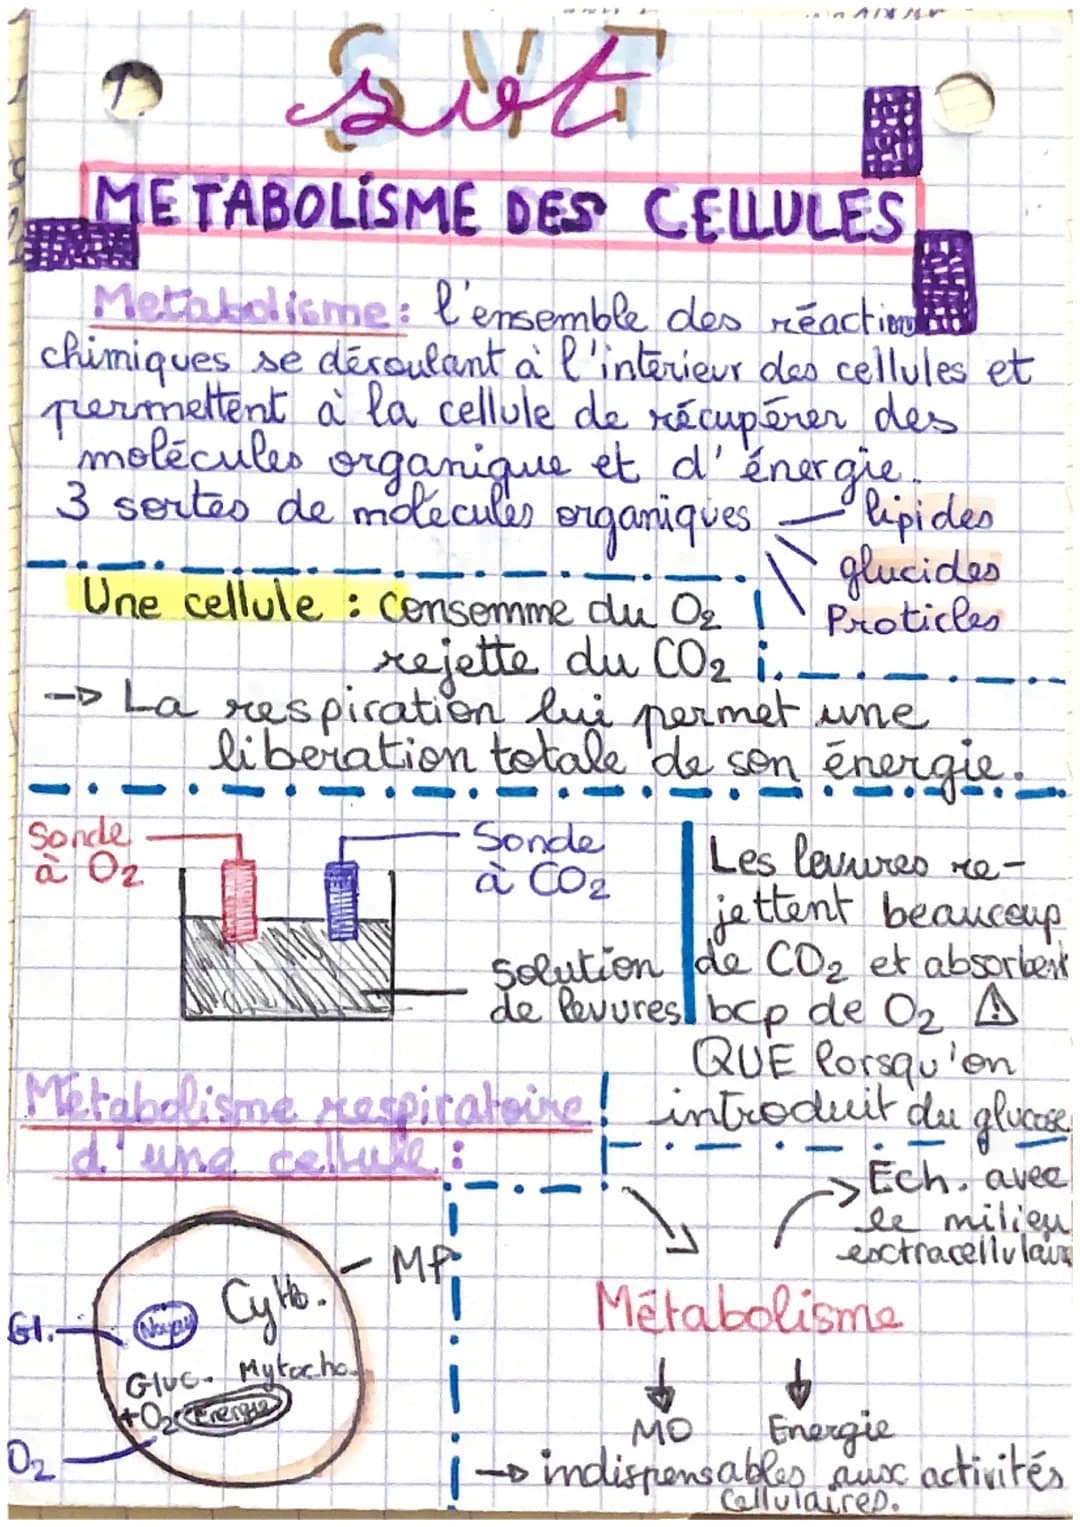 SVT
svt
METABOLISME DES CELLULES
Metabolisme : l'ensemble des réaction
chimiques se déroulant à l'intérieur des cellules et
permettent à la cellule de récupérer des
molécules organique et d'énergie.
3 sortes de molécules organiques
lipides
glucides
Proticles
Une cellule : consomme du O2
rejette du CO2
-> La respiration lui permet une
liberation totale de son énergie.
Sonde
à O2
Sonde
à CO2
solution
de levures
Les levures re-
jettent beaucoup
de CO2 et absorbent
bcp de O2 ⚠
QUE lorsqu'on
introduit du glucose
Métabolisme respiratoire
d'une cellule :
MP
Cyto.
Gl.
Noyau
Gluc. Mytocho.
+O2 Energie
O2
Ech. avec
le milieu
extracellulaire
Métabolisme
MO Energie
-> indispensables aux activités
cellulaires.